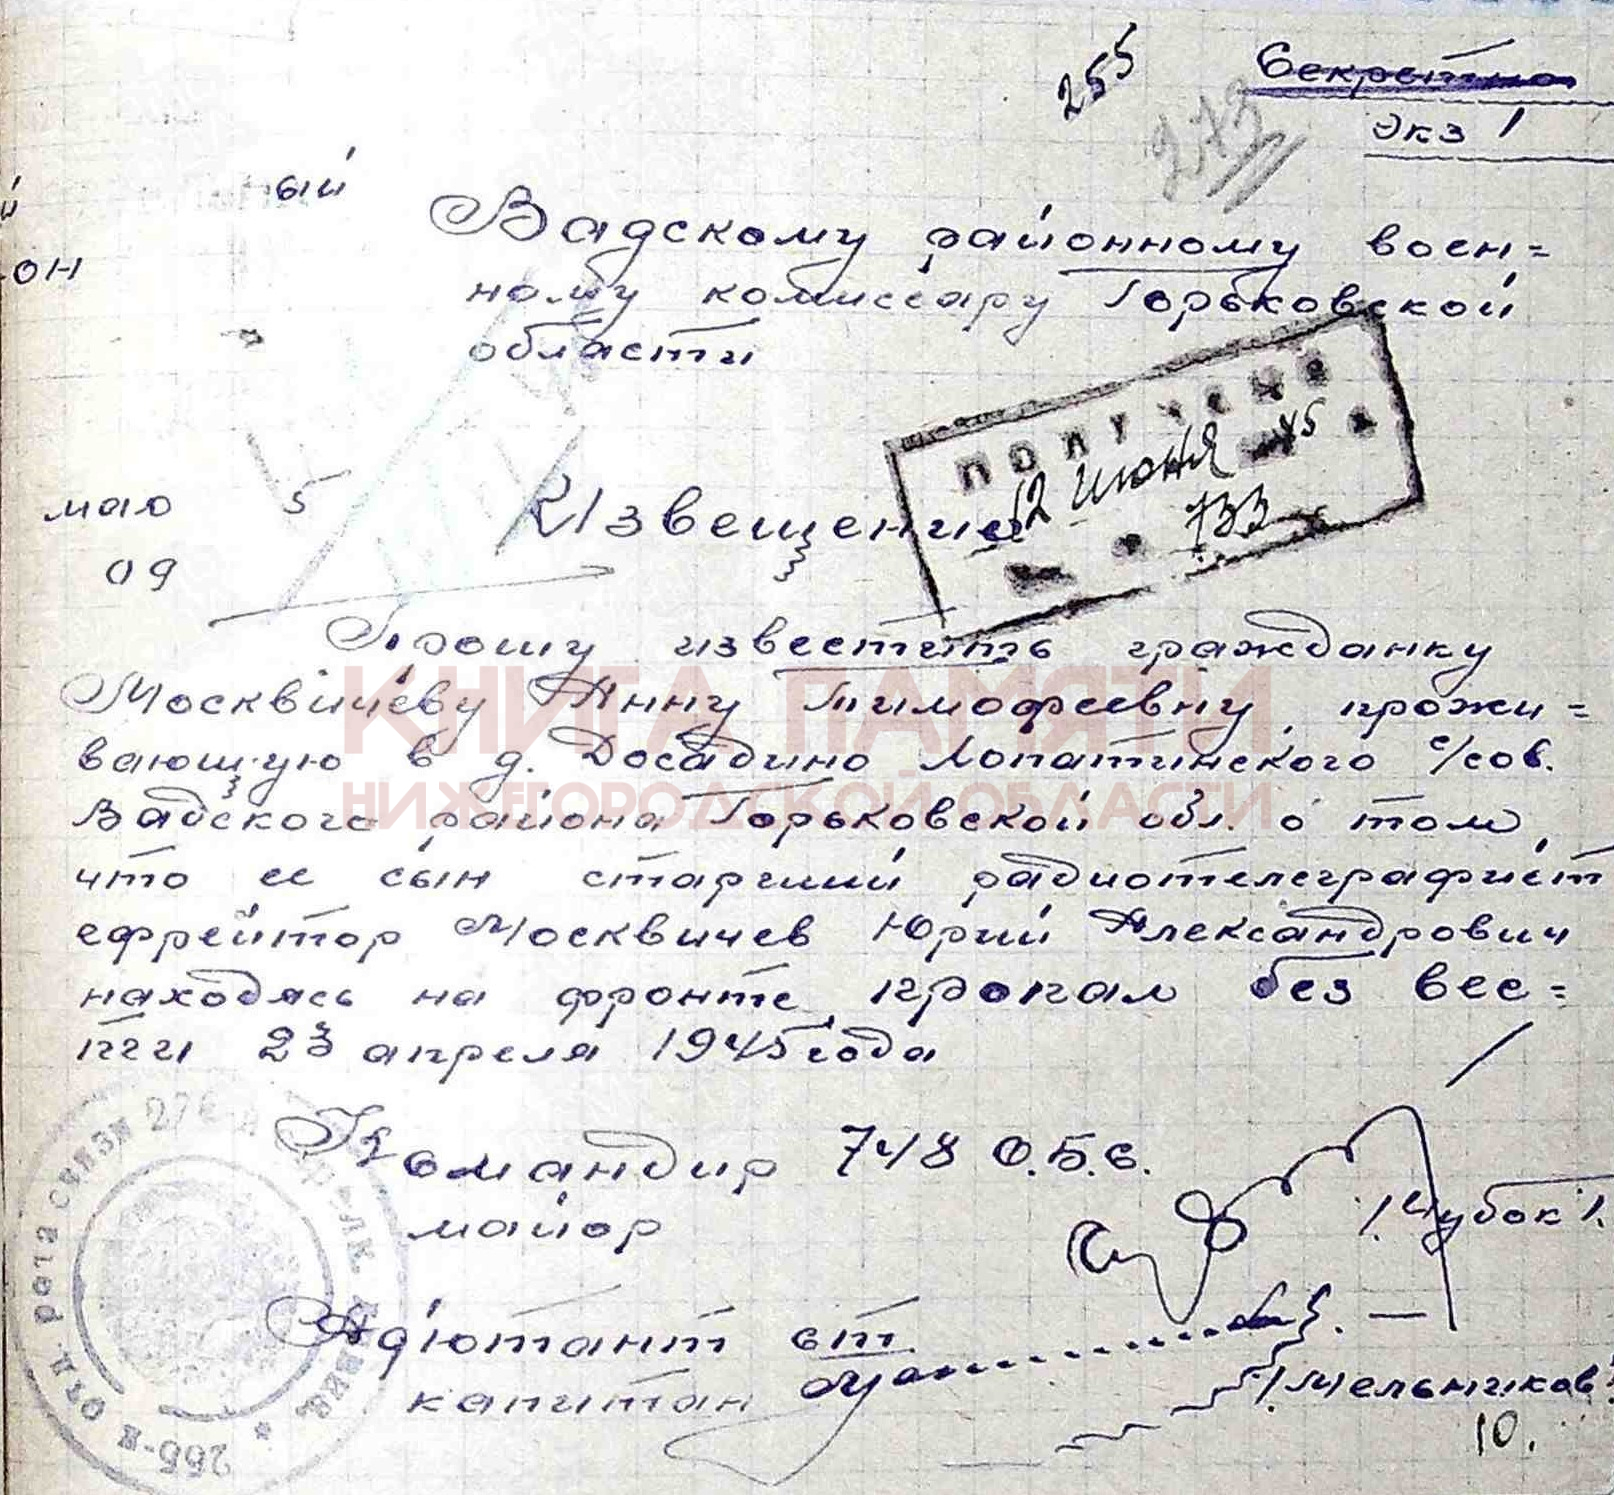 255
Секретно
273
Экз 1
ый
й
он
Вадскому районному воен=
ному комиссару Горьковской
области
получено
12 июня 45
733
маю 5
09
Извещение
Прошу известить гражданку
Москвичеву Анну Тимофеевну, прожи=
вающую в д. Досадино Лопатинского с/сов.
Вадского района Горьковской обл. о том,
что ее сын старший радиотелеграфист
ефрейтор Москвичев Юрий Александрович
находясь на фронте, пропал без вес=
ти 23 апреля 1945 года
КНИГА ПАМЯТИ
НИЖЕГОРОДСКОЙ ОБЛАСТИ
Командир 748 О.Б.С.
майор
/Чубок/.
Адютант ст
капитан
/Мельников/
10.
266-я отд рота связи 276-й